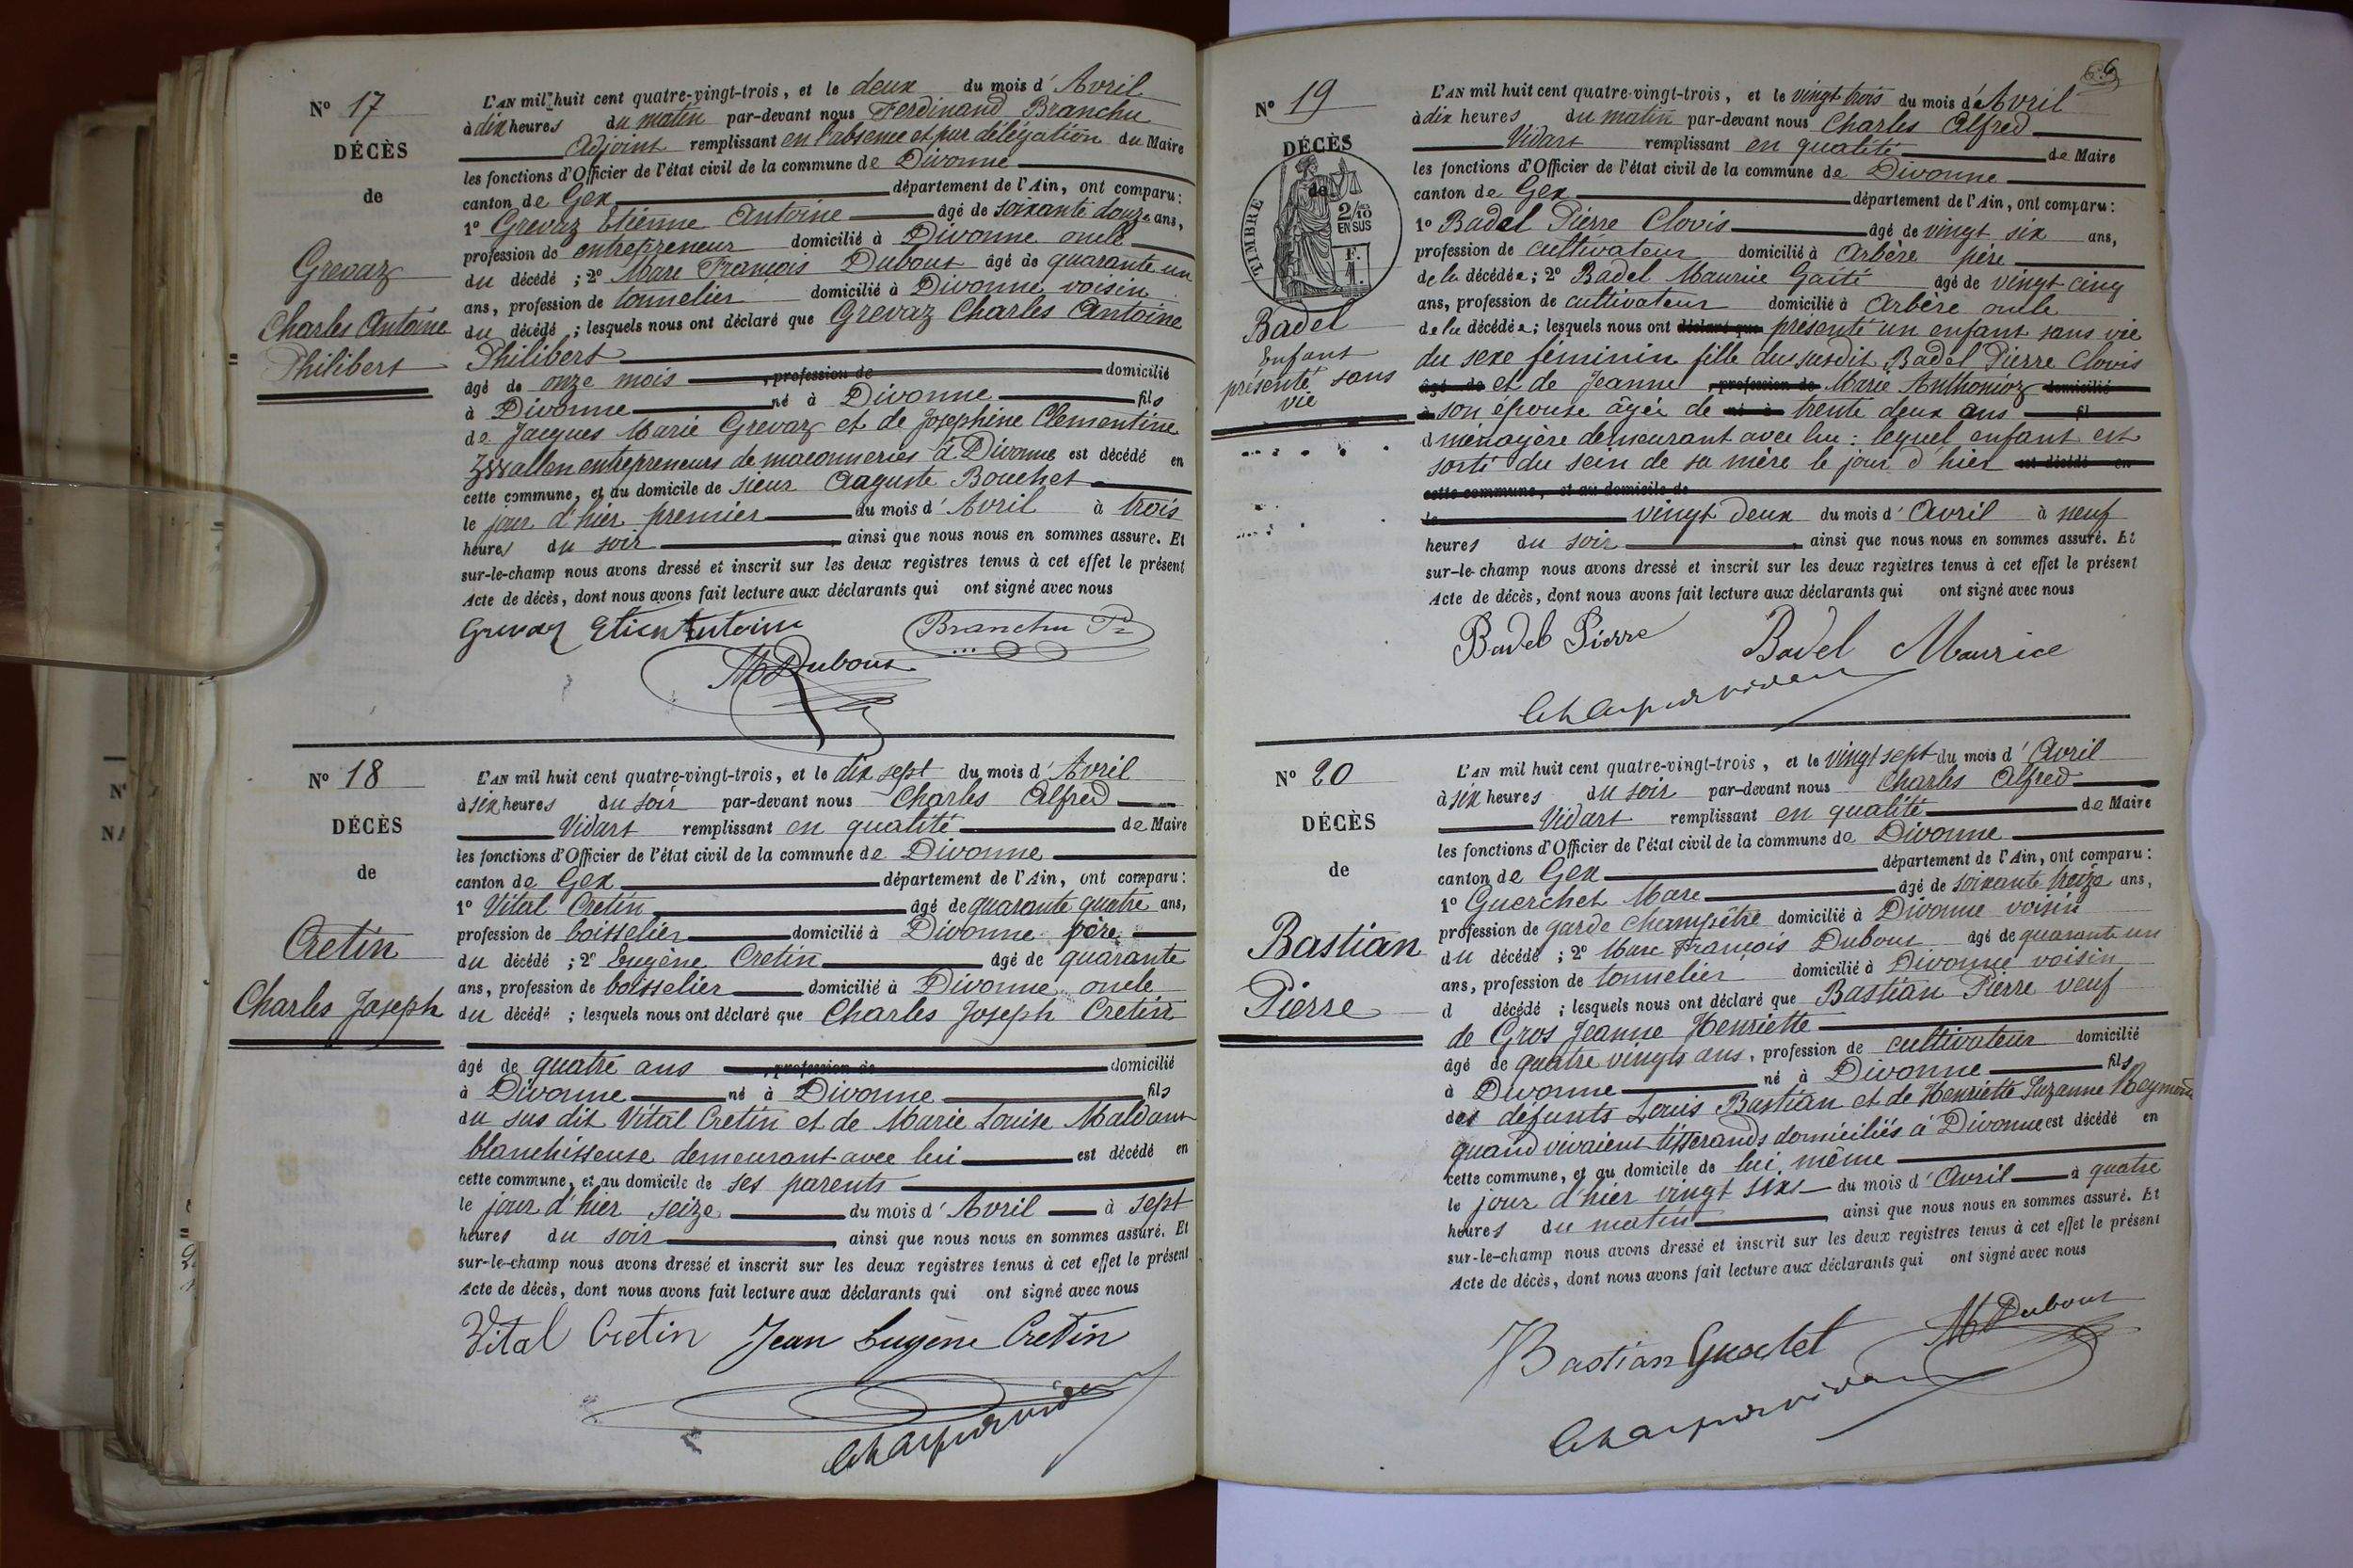 Nº 17
DÉCÈS
de
Grevaz
Charles Antoine
Philibert
L'AN mil huit cent quatre-vingt-trois, et le deux du mois d'Avril
à dix heures du matin par-devant nous Ferdinand Branchu
Adjoint remplissant en l'absence et par délégation du Maire
les fonctions d'Officier de l'état civil de la commune de Divonne
canton de Gex département de l'Ain, ont comparu :
1º Grevaz Etienne Antoine âgé de soixante douze ans,
profession de entrepreneur domicilié à Divonne oncle
du décédé ; 2º Marc François Dubout âgé de quarante un
ans, profession de tonnelier domicilié à Divonne voisin
du décédé ; lesquels nous ont déclaré que Grevaz Charles Antoine
Philibert
âgé de onze mois , profession de domicilié
à Divonne né à Divonne fils
de Jacques Marie Grevaz et de Josephine Clementine
entrepreneurs de maconneries à Divonne est décédé en
cette commune, et au domicile de sieur Auguste Bouchet
le jour d'hier premier du mois d'Avril à trois
heures du soir ainsi que nous nous en sommes assuré. Et
sur-le-champ nous avons dressé et inscrit sur les deux registres tenus à cet effet le présent
Acte de décès, dont nous avons fait lecture aux déclarants qui ont signé avec nous
Grevaz Antoine Branchu
M Dubout
Nº 18
DÉCÈS
de
Cretin
Charles Joseph
L'AN mil huit cent quatre-vingt-trois, et le dix sept du mois d'Avril
à six heures du soir par-devant nous Charles Alfred
Vidart remplissant en qualité de Maire
les fonctions d'Officier de l'état civil de la commune de Divonne
canton de Gex département de l'Ain, ont comparu :
1º Vital Cretin âgé de quarante quatre ans,
profession de boisselier domicilié à Divonne père
du décédé ; 2º Eugène Cretin âgé de quarante
ans, profession de boisselier domicilié à Divonne oncle
du décédé ; lesquels nous ont déclaré que Charles Joseph Cretin
âgé de quatre ans , profession de domicilié
à Divonne né à Divonne fils
du sus dit Vital Cretin et de Marie Louise
blanchisseuse demeurant avec lui est décédé en
cette commune, et au domicile de ses parents
le jour d'hier seize du mois d'Avril à sept
heures du soir ainsi que nous nous en sommes assuré. Et
sur-le-champ nous avons dressé et inscrit sur les deux registres tenus à cet effet le présent
Acte de décès, dont nous avons fait lecture aux déclarants qui ont signé avec nous
Vital Cretin Jean Eugène Cretin
Nº 19
DÉCÈS
de
TIMBRE
2/10
EN SUS
F.
1.
Badel
Enfant
présenté sans
vie
L'AN mil huit cent quatre-vingt-trois, et le vingt trois du mois d'Avril
à dix heures du matin par-devant nous Charles Alfred
Vidart remplissant en qualité de Maire
les fonctions d'Officier de l'état civil de la commune de Divonne
canton de Gex département de l'Ain, ont comparu :
1º Badel Pierre Clovis âgé de vingt six ans,
profession de cultivateur domicilié à Arbère père
de la décédée ; 2º Badel Maurice Gaité âgé de vingt cinq
ans, profession de cultivateur domicilié à Arbère oncle
de la décédée ; lesquels nous ont déclaré que présenté un enfant sans vie
du sexe féminin fille du susdit Badel Pierre Clovis
âgé de et de Jeanne profession de Marie Anthonioz domicilié
à son épouse âgée de né à trente deux ans fil
d ménagère demeurant avec lui : lequel enfant est
sorti du sein de sa mère le jour d'hier est décédé en
cette commune, et au domicile de
le vingt deux du mois d'Avril à neuf
heures du soir , ainsi que nous nous en sommes assuré. Et
sur-le-champ nous avons dressé et inscrit sur les deux registres tenus à cet effet le présent
Acte de décès, dont nous avons fait lecture aux déclarants qui ont signé avec nous
Badel Pierre Badel Maurice
Nº 20
DÉCÈS
de
Bastian
Pierre
L'AN mil huit cent quatre-vingt-trois, et le vingt sept du mois d'Avril
à six heures du soir par-devant nous Charles Alfred
Vidart remplissant en qualité de Maire
les fonctions d'Officier de l'état civil de la commune de Divonne
canton de Gex département de l'Ain, ont comparu :
1º Guerchet Marc âgé de soixante treize ans,
profession de garde champêtre domicilié à Divonne voisin
du décédé ; 2º Marc François Dubout âgé de quarante un
ans, profession de tonnelier domicilié à Divonne voisin
d décédé ; lesquels nous ont déclaré que Bastian Pierre veuf
de Gros Jeanne Henriette
âgé de quatre vingts ans, profession de cultivateur domicilié
à Divonne né à Divonne fils
des défunts Louis Bastian et de Henriette Suzanne
quand vivaient tisserands domiciliés à Divonne est décédé en
cette commune, et au domicile de lui même
le jour d'hier vingt six du mois d'Avril à quatre
heures du matin , ainsi que nous nous en sommes assuré. Et
sur-le-champ nous avons dressé et inscrit sur les deux registres tenus à cet effet le présent
Acte de décès, dont nous avons fait lecture aux déclarants qui ont signé avec nous
Bastian M Dubout